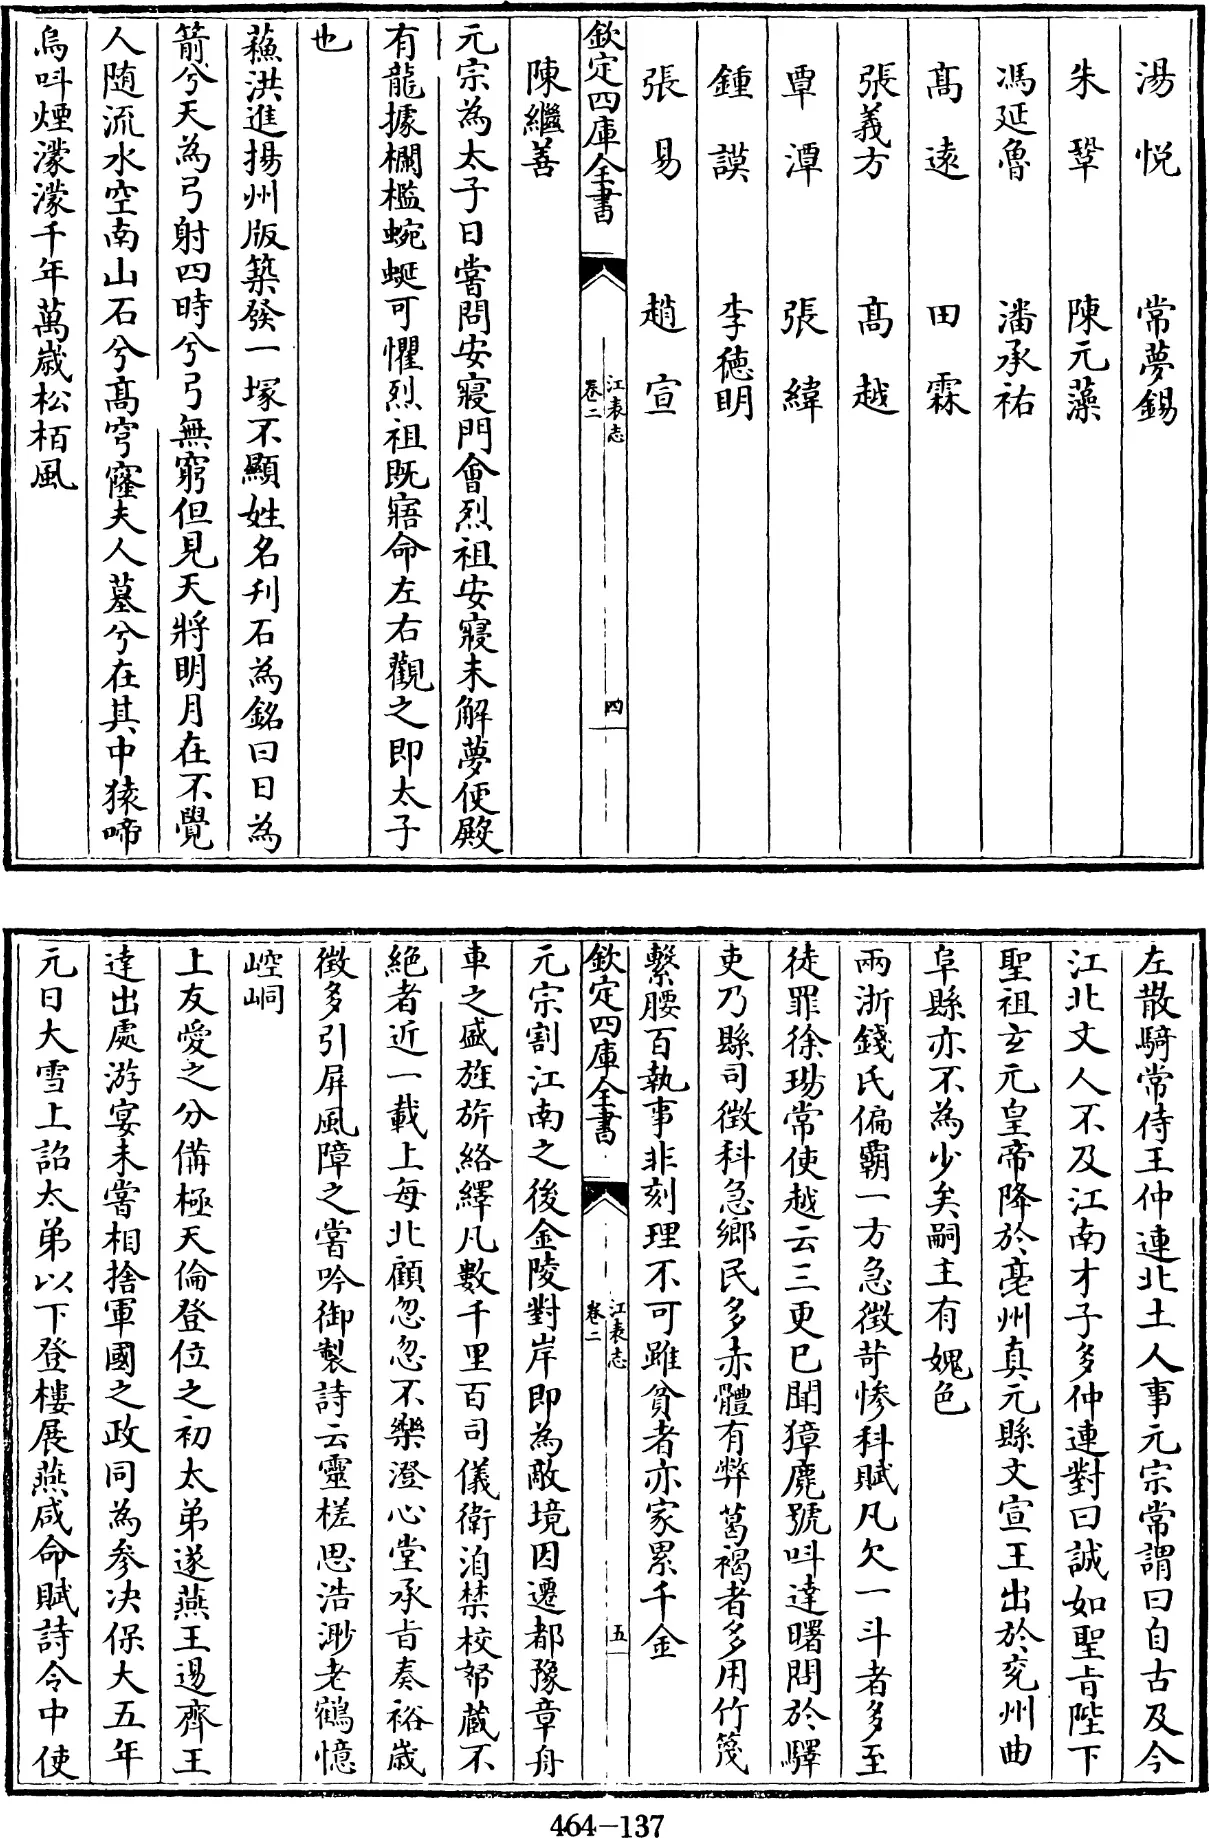 湯悦 常夢錫
朱鞏 陳元藻
馮延魯 潘承祐
髙逺 田霖
張義方 髙越
覃潭 張緯
鍾謨 李徳明
張易 趙宣
欽定四庫全書 江表志 卷二 四
陳繼善
元宗為太子日嘗問安寢門會烈祖安寢未解夢便殿
有龍據欄檻蜿蜒可懼烈祖既寤命左右觀之即太子
也
蘓洪進揚州版築發一塚不顯姓名刋石為銘曰日為
箭兮天為弓射四時兮弓無窮但見天將明月在不覺
人随流水空南山石兮髙穹窿夫人墓兮在其中猿啼
烏呌煙濛濛千年萬歳松栢風
左散騎常侍王仲連北土人事元宗常謂曰自古及今
江北文人不及江南才子多仲連對曰誠如聖㫖陛下
聖祖玄元皇帝降於亳州真元縣文宣王出於兖州曲
阜縣亦不為少矣嗣主有媿色
兩浙錢氏偏霸一方急徴苛慘科賦凡欠一斗者多至
徒罪徐瑒常使越云三更巳聞獐麂號呌達曙問於驛
吏乃縣司徴科急鄉民多赤體有弊葛褐者多用竹篾
繫腰百執事非刻理不可雖貧者亦家累千金
欽定四庫全書 江表志 卷二 五
元宗割江南之後金陵對岸即為敵境因遷都豫章舟
車之盛旌旂絡繹凡數千里百司儀衛洎禁校帑藏不
絶者近一載上每北顧忽忽不樂澄心堂承㫖奏裕歳
徴多引屏風障之嘗吟御製詩云靈槎思浩渺老鶴憶
崆峒
上友愛之分備極天倫登位之初太弟遂燕王逷齊王
達出處游宴未嘗相捨軍國之政同為參决保大五年
元日大雪上詔太弟以下登樓展燕咸命賦詩令中使
464-137